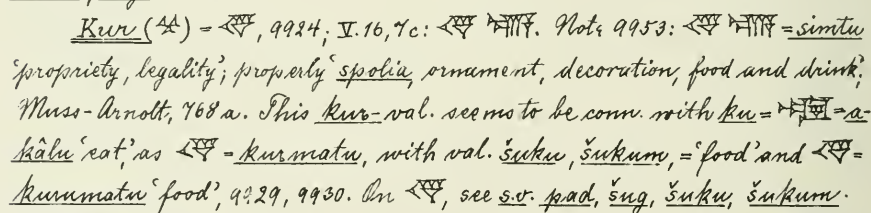 Kur (𒆳) = 𒉻, 9924; V. 16, 7c: 𒉻 . Note 9953: 𒉻 = simtu
'propriety, legality'; properly spolia, ornament, decoration, food and drink';
Muss-Arnolt, 768 a. This kur-val. seems to be conn. with ku = 𒅥 = a-
kâlu 'eat,' as 𒉻 = kurmatu, with val. šuku, šukum, = 'food' and 𒉻 =
kurumatu 'food', 9929, 9930. On 𒉻, see s.v. pad, šug, šuku, šukum.